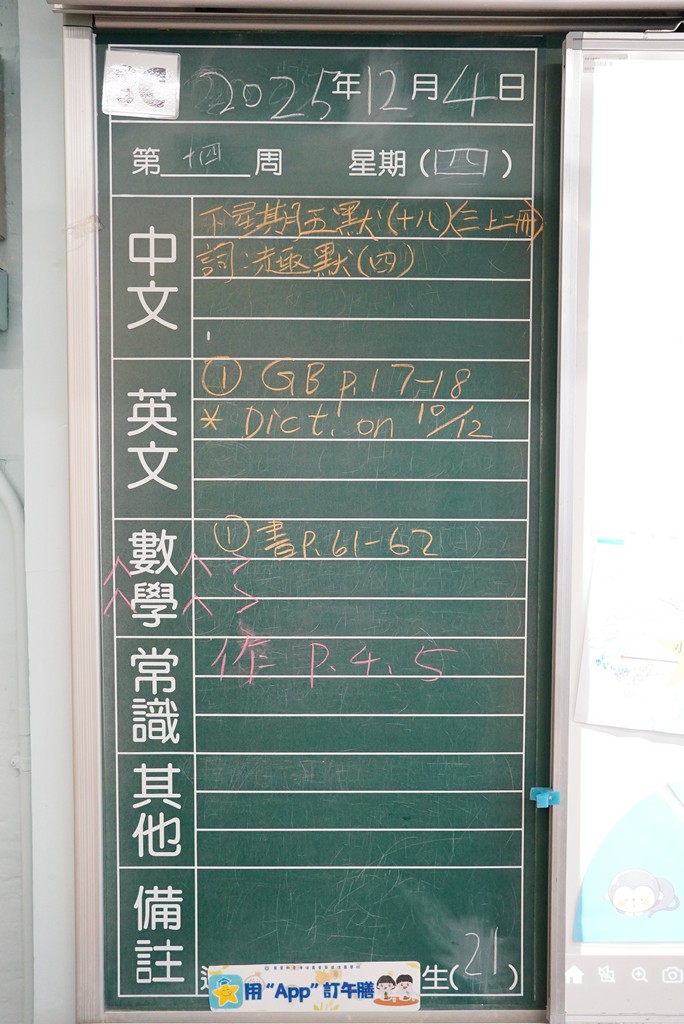 3C
2025年12月4日
第十四周 星期(四)
中文
下星期五默(十八)(三上二冊)
詞:趣默(四)
英文
① GB p.17-18
* Dict. on 10/12
數學
① 書P.61-62
常識
作 P.4、5
其他
備註
生(21)
用“App”訂午膳